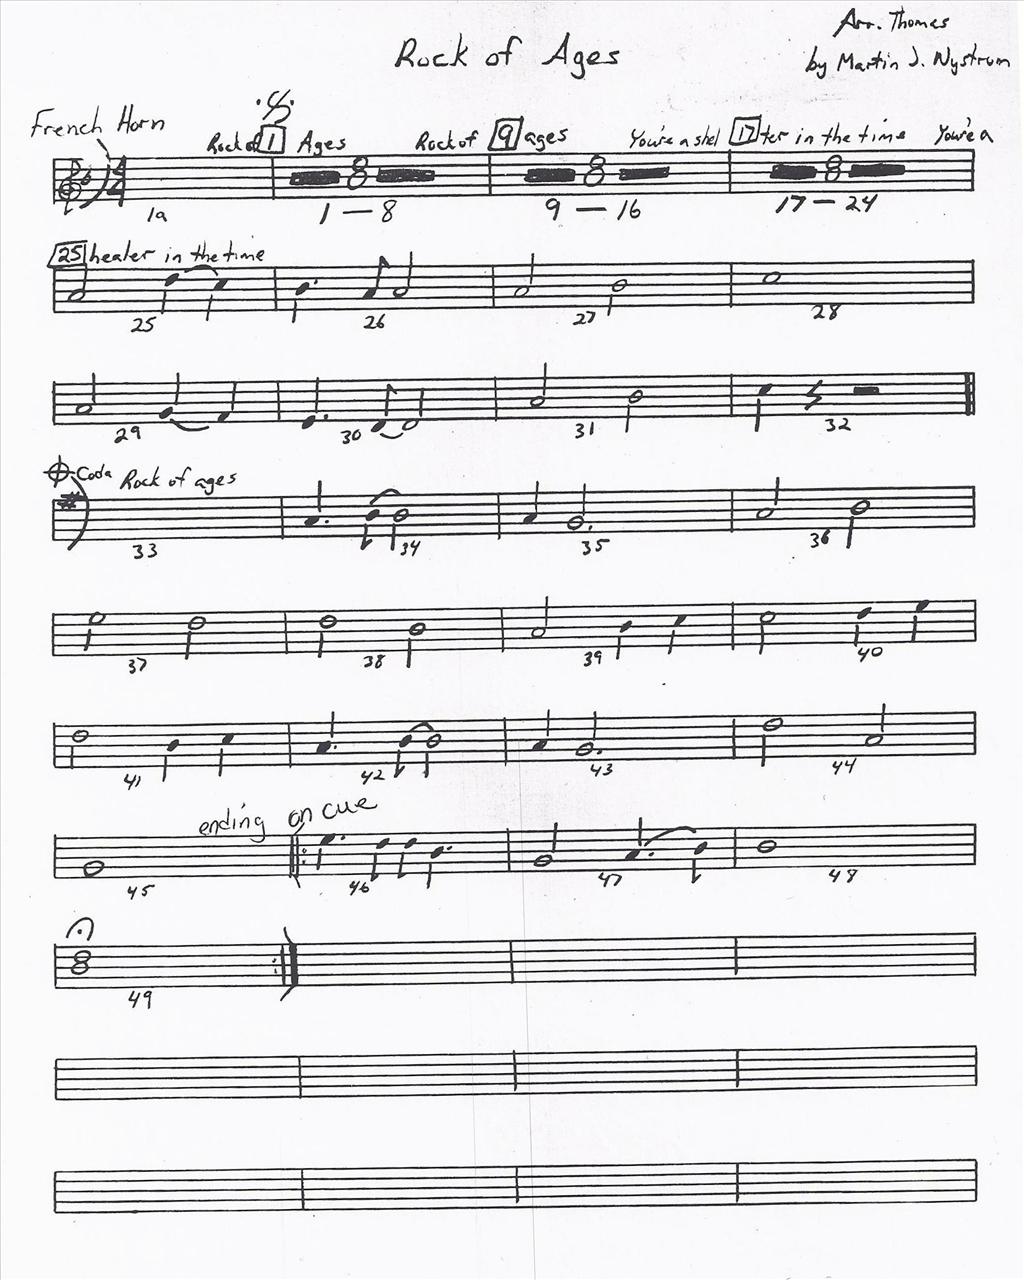 Arr. Thomas
Rock of Ages
by Martin J. Nystrom
French Horn
Rock of 1 Ages Rock of 9 ages You're a shel 17 ter in the time You're a
1a 1 — 8 9 — 16 17 — 24
25 healer in the time
25 26 27 28
29 30 31 32
Coda Rock of ages
33 34 35 36
37 38 39 40
41 42 43 44
ending on cue
45 46 47 48
49